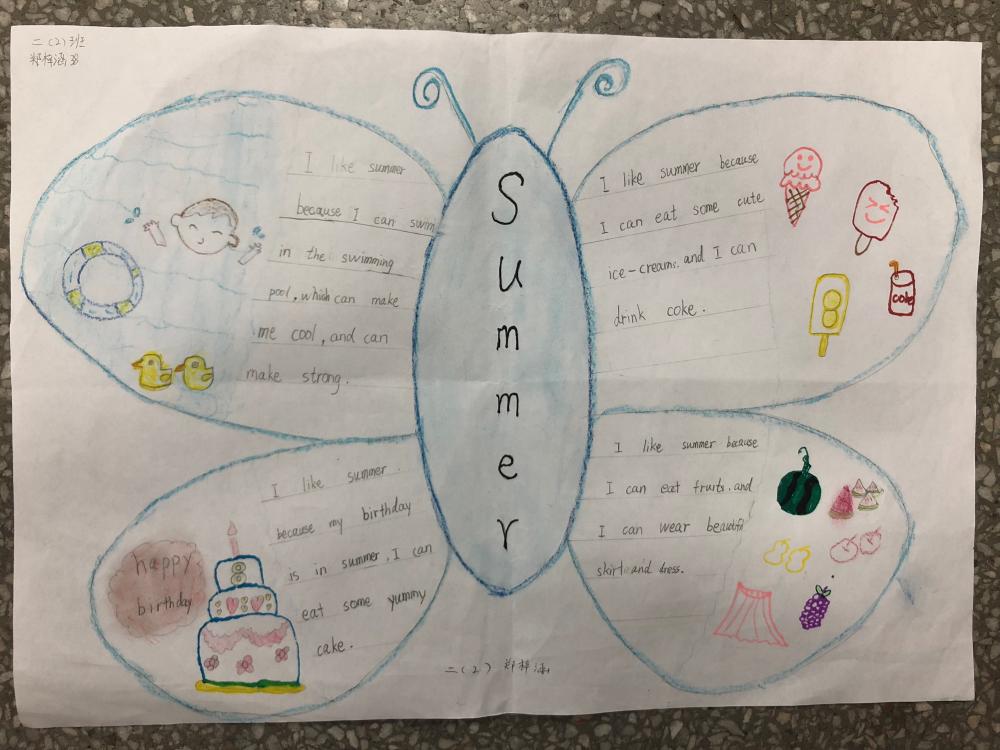 二(2)班
郑梓涵 38
Summer
I like summer
because I can swim
in the swimming
pool, which can make
me cool, and can
make strong.
I like summer because
I can eat some cute
ice-creams. and I can
drink coke.
coke
I like summer.
because my birthday
is in summer, I can
eat some yummy
cake.
happy
birthday
8
I like summer because
I can eat fruits. and
I can wear beautiful
skirt and dress.
二(2) 郑梓涵